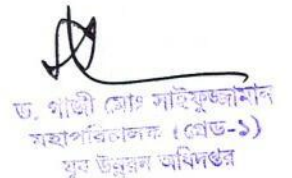 ড. গাজী মোঃ সাইফুজ্জামান
মহাপরিচালক (গ্রেড-১)
যুব উন্নয়ন অধিদপ্তর